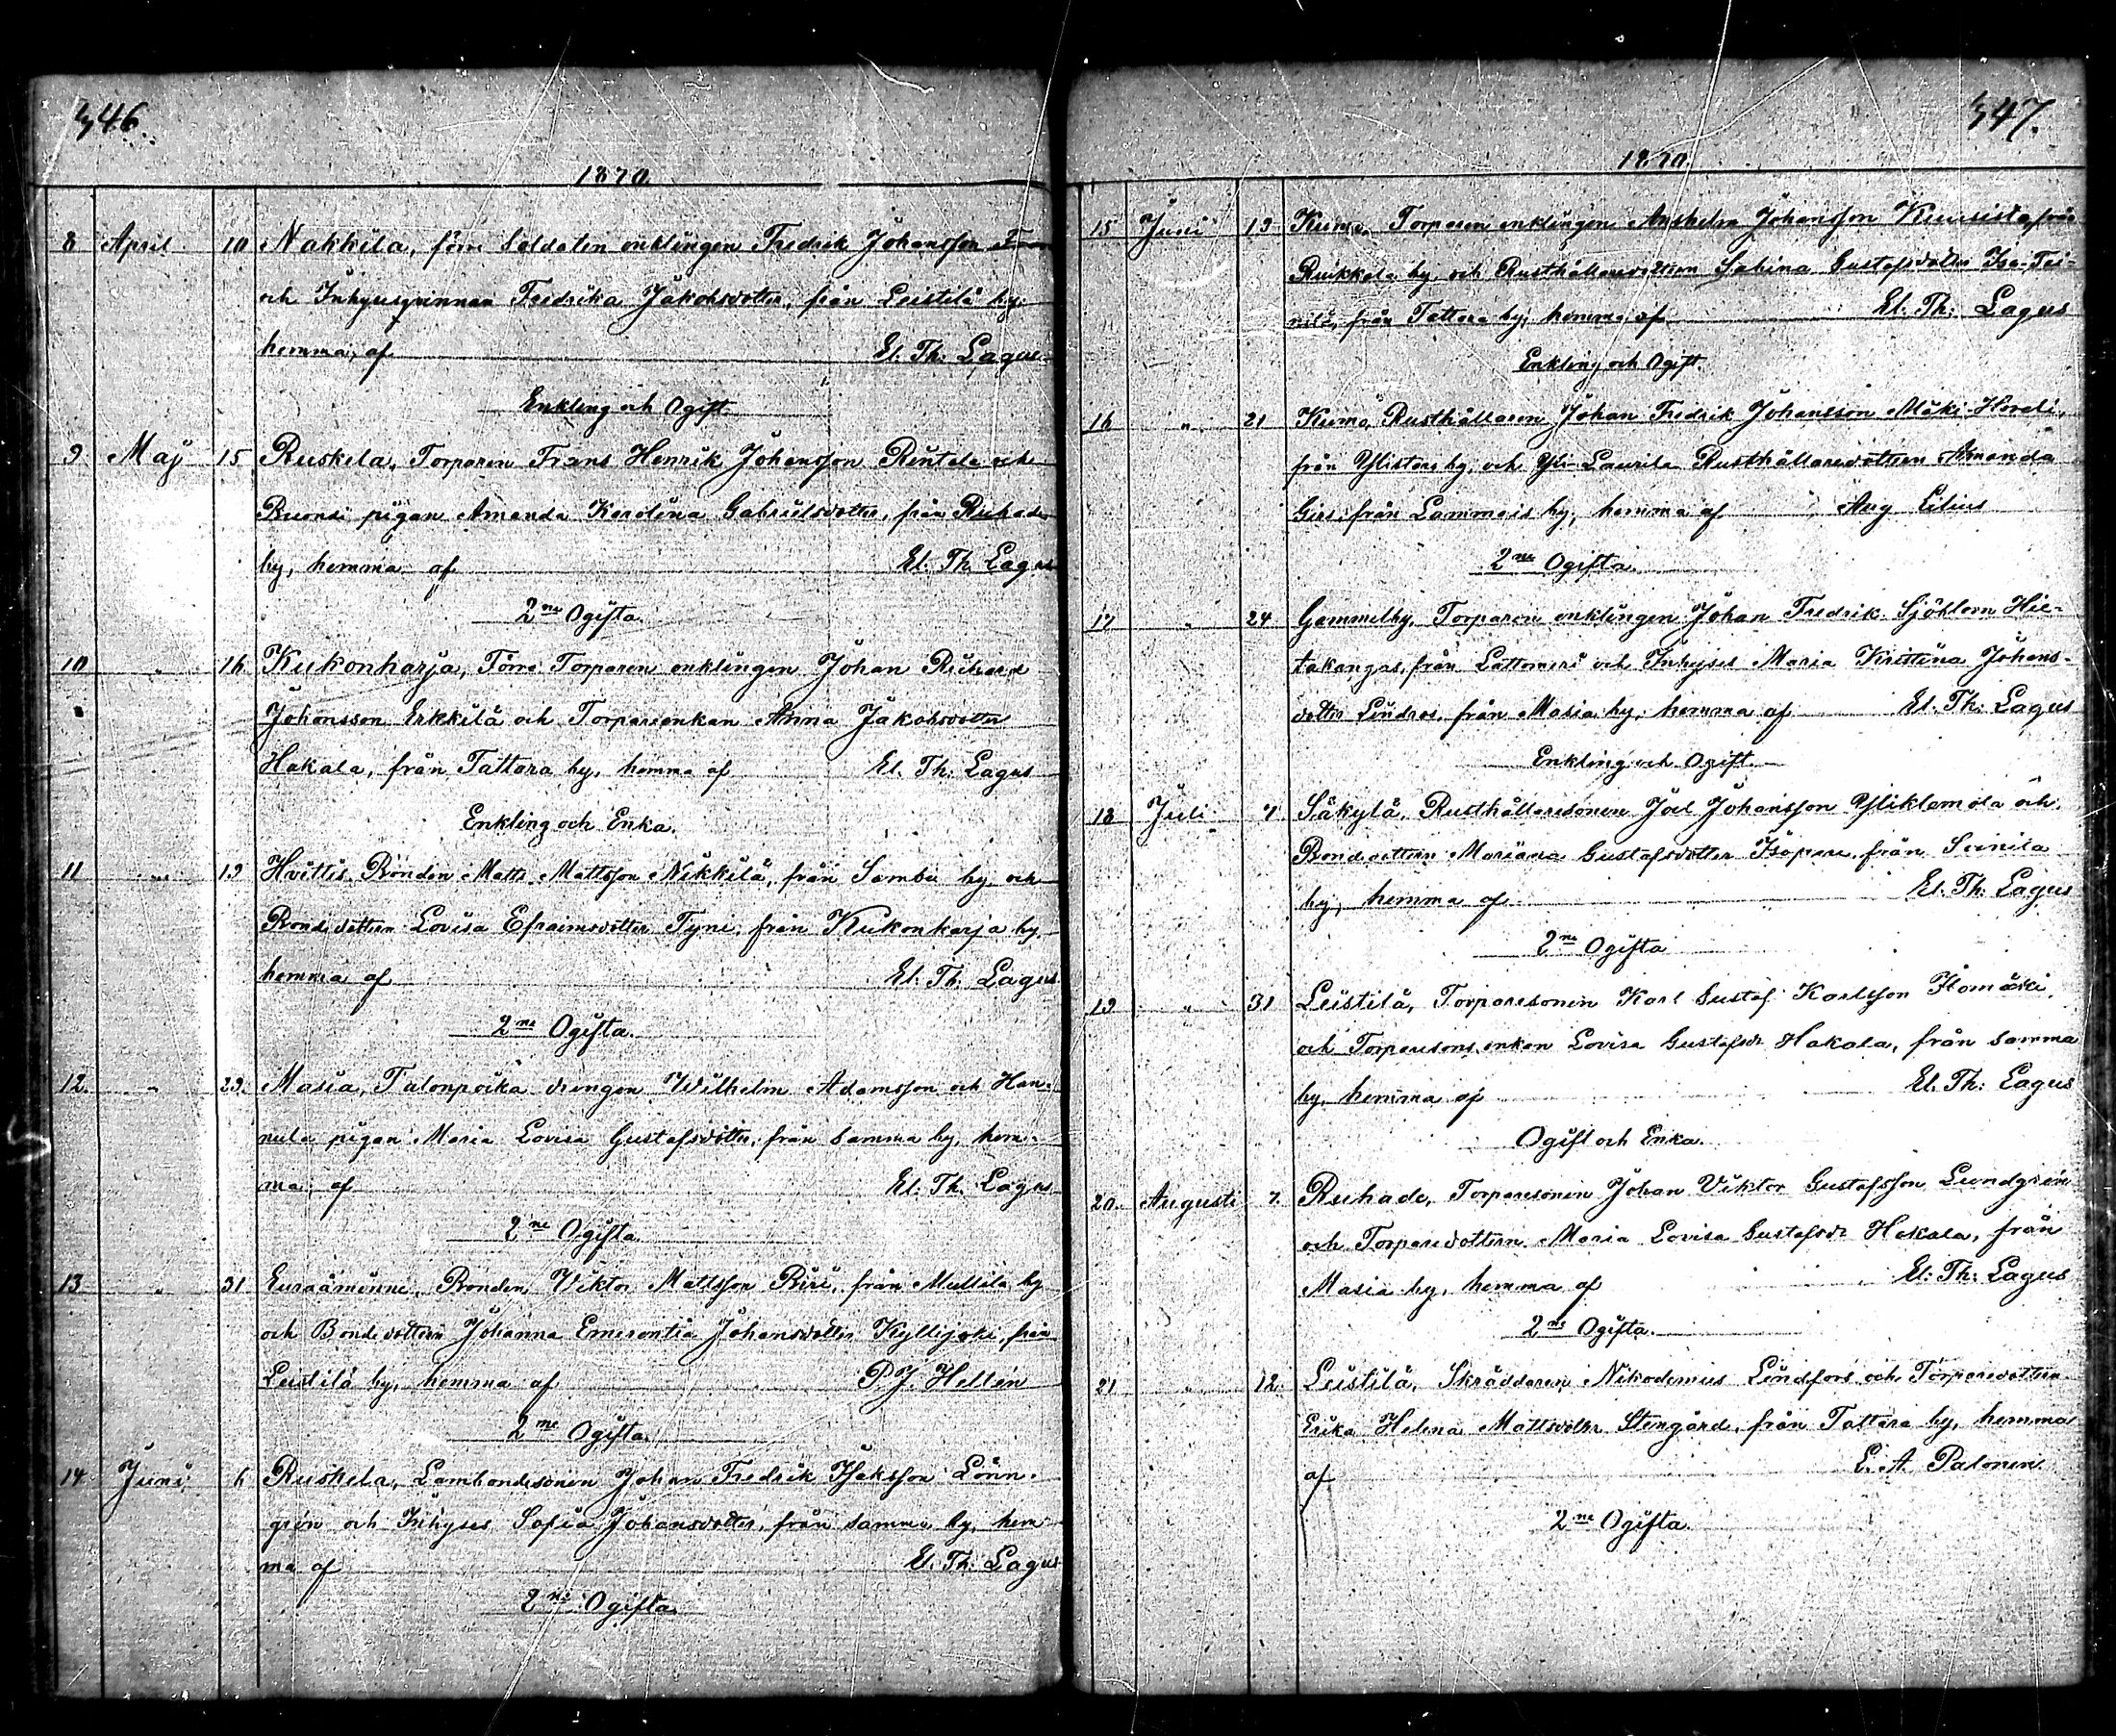 346.
1870.
8 April 10 Nakkila, förre Soldaten enklingen Fredrik Johansson
och Inhysesqvinnan Fredrika Jakobsdotter, från Leistilä by,
hemma, af El. Th: Lagus
Enkling och Ogift.
9 Maj 15 Ruskela, Torparen Frans Henrik Johansson Rintala och
pigan Amanda Karolina Gabrielsdotter, från Ruhade
by, hemma af El. Th. Lagus
2ne Ogifta.
10 " 16 Kukonharja, Förre Torparen enklingen Johan Richard
Johansson Erkkilä och Torpareenkan Anna Jakobsdotter
Hakala, från Tattara by, hemma af El. Th: Lagus
Enkling och Enka.
11 " 19 Hvittis, Bonden Matts Mattsson Nikkilä, från Sambu by och
Bondedottern Lovisa Efraimsdotter Tyni, från Kukonharja by,
hemma af El. Th. Lagus
2ne Ogifta.
12. " 29. Masia, Talonpoika drengen Wilhelm Adamsson och Han-
nula pigan Maria Lovisa Gustafsdotter, från samma by, hem-
ma, af El. Th. Lagus
2ne Ogifta
13 " 31 Euraåminne, Bonden Viktor Mattsson Biri, från Mullila by
och Bondedottern Johanna Emerentia Johansdotter Kyllijoki, från
Leistilä by, hemma af P. J. Heltén
2ne Ogifta.
14 Juni 6 Ruskela, Lambondesonen Johan Fredrik Isaksson Lönn-
grén och Inhyses Sofia Johansdotter, från samma by, hem-
ma af El. Th: Lagus
2ne Ogifta.
347.
1870.
15 Juni 19 Kumo, Torparen enklingen Anshelm Johansson Kuusisto, från
Ruikkala by, och Rusthållaredottern Sabina Gustafsdotter Iso-Tei-
nilä, från Tattara by, hemma, af El. Th: Lagus
Enkling och Ogift.
16 " 21 Kumo, Rusthållaren Johan Fredrik Johansson Mäki-Horeli,
från Ylistaro by, och Yli-Laurila Rusthållaredottern Amanda
från Lammais by, hemma af Aug Lilius
2ne Ogifta.
17 " 24 Gammelby, Torparen enklingen Johan Fredrik Sjöblom Hie-
takangas, från Lattomeri och Inhyses Maria Kristina Johans-
dotter Lindros, från Masia by, hemma af El. Th: Lagus
Enkling och Ogift.
18 Juli 7 Säkylä, Rusthållaresonen Joel Johansson Yliklemola och
Bondedottern Mariana Gustafsdotter Isopere, från Soinila
by, hemma af El. Th: Lagus
2ne Ogifta
19 " 31 Leistilä, Torparesonen Karl Gustaf Karlsson Ilomäki
och Torparesons enkan Lovisa Gustafsdr Hakala, från samma
by, hemma af El. Th: Lagus
Ogift och Enka.
20. Augusti 7. Ruhade, Torparesonen Johan Viktor Gustafsson Lundgrén
och Torparedottern Maria Lovisa Gustafsdr Hakala, från
Masia by, hemma af El: Th: Lagus
2ne Ogifta.
21 " 12 Leistilä, Skräddaren Nikodemus Lindfors och Torparedottern
Erika Helena Mattsdotter Stengård, från Tattara by, hemma
af E. A. Palonen
2ne Ogifta.